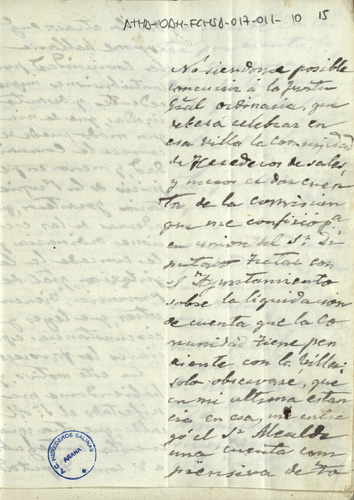 ATHA-DAH-FCMSA-017-011-10 15
No siendome posible
concurrir á la Junta
Gral ordinaria, que
deberá celebrar en
esa villa la Comunidad
de Herederos de salas,
y menos el dar cuen
ta de la Comision
que me confirió pª
en union del Sr. Di
putado tratar con
el Ayuntamiento
sobre la liquidacion
de cuenta que la Co
munidad tiene pen
diente con la Villa;
solo observase, que
en mi ultima estan
cia en esa, me entre
gó el Sr. Alcalde
una cuenta com
prensiva de to
HEREDEROS SALINAS
AÑANA